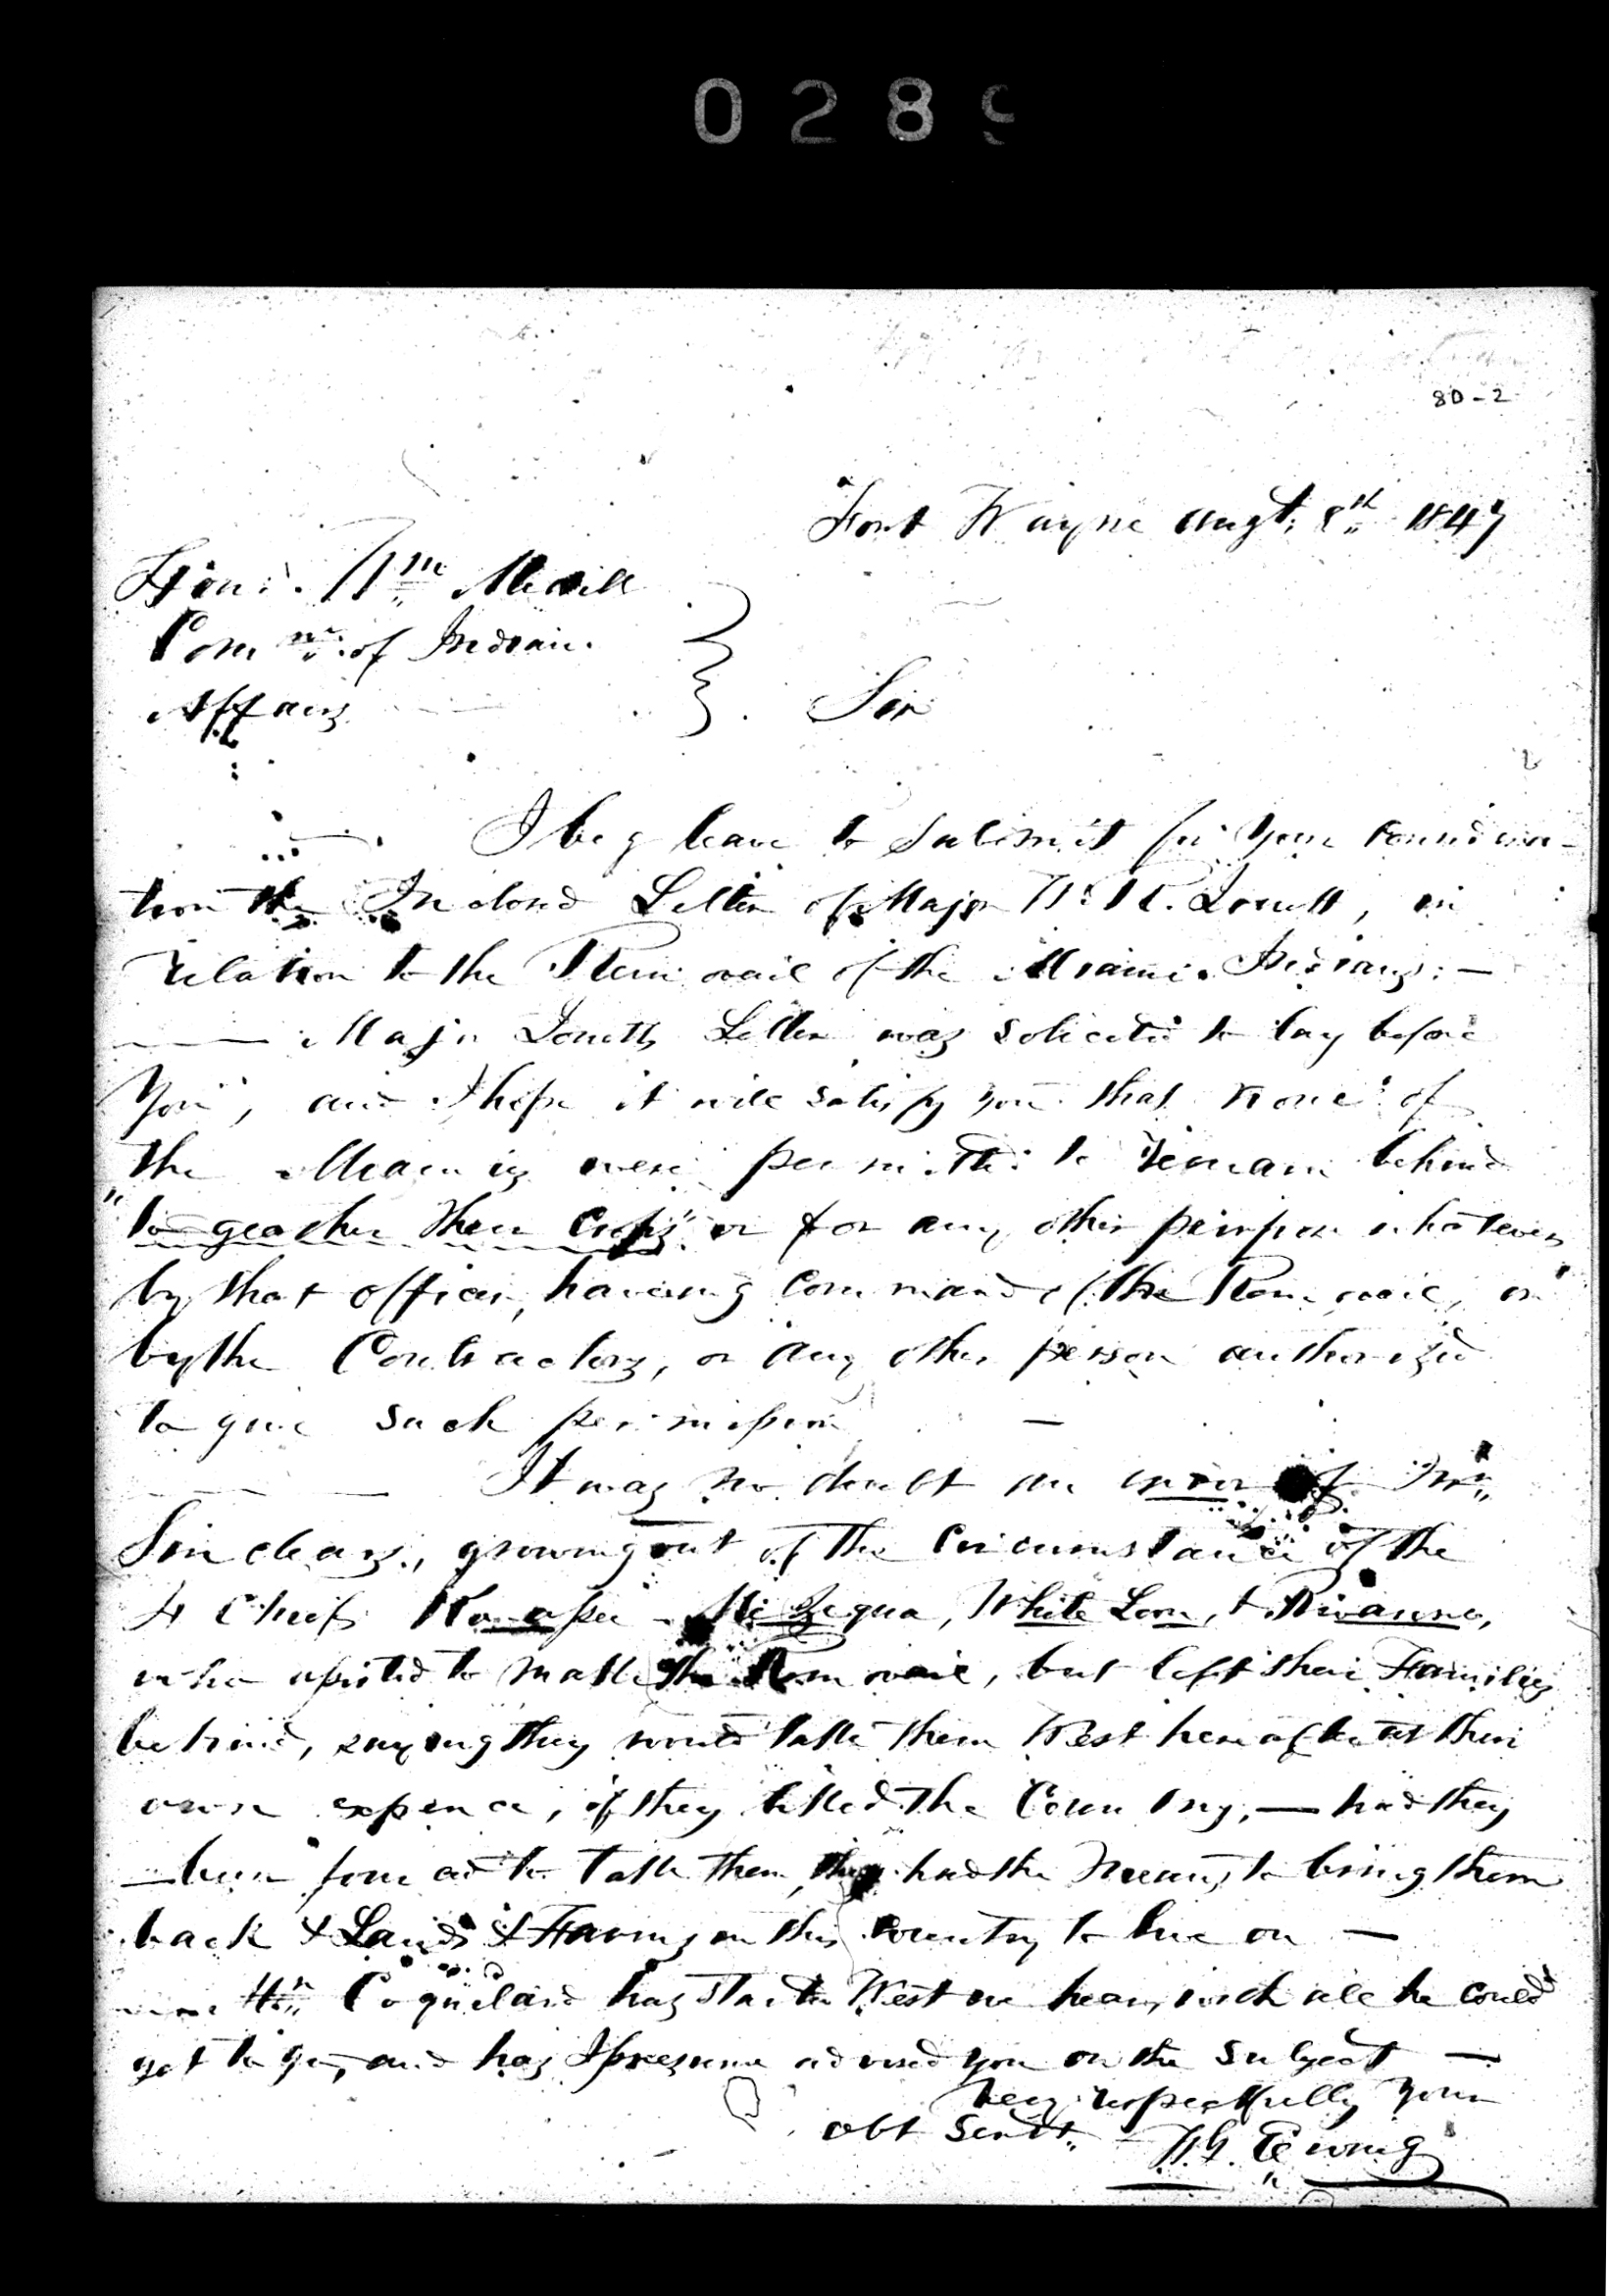 0289
80-2
Fort Wayne Augt. 8th 1847
Hon. Wm Medill
Comnr. of Indian
Affairs
Sir
I beg leave to Submit for Your Considera-
tion the Inclosed Letter of Major W. R. Jouett, in
relation to the Removal of the Miami Indians: —
Major Jouetts Letter was Solicited to lay before
You, and I hope it will satisfy you that none of
the Miamies were permitted to remain behind
"to geather their Crops" or for any other purpose whatever
by that officer, having Command of the Removal, or
by the Contractors, or any other person authorized
to give such permission —
It was no doubt an error of Mr
Sinclears, growing out of the Circumstance of the
4 Chiefs Mi Zequa, White Loon, &
who assisted to make the Removal, but left their Families
behind, saying they would take them West hereafter at their
own expence, if they liked the Country, — had they
been forced to take them, they had the Means to bring them
back & Lands & Farms in this Country to live on —
Mr Coquilard has started West we hear, with all he could
get to go, and has I presume advised you on the subject —
Very respectfully Your
obt Servt.
W. G. Ewing